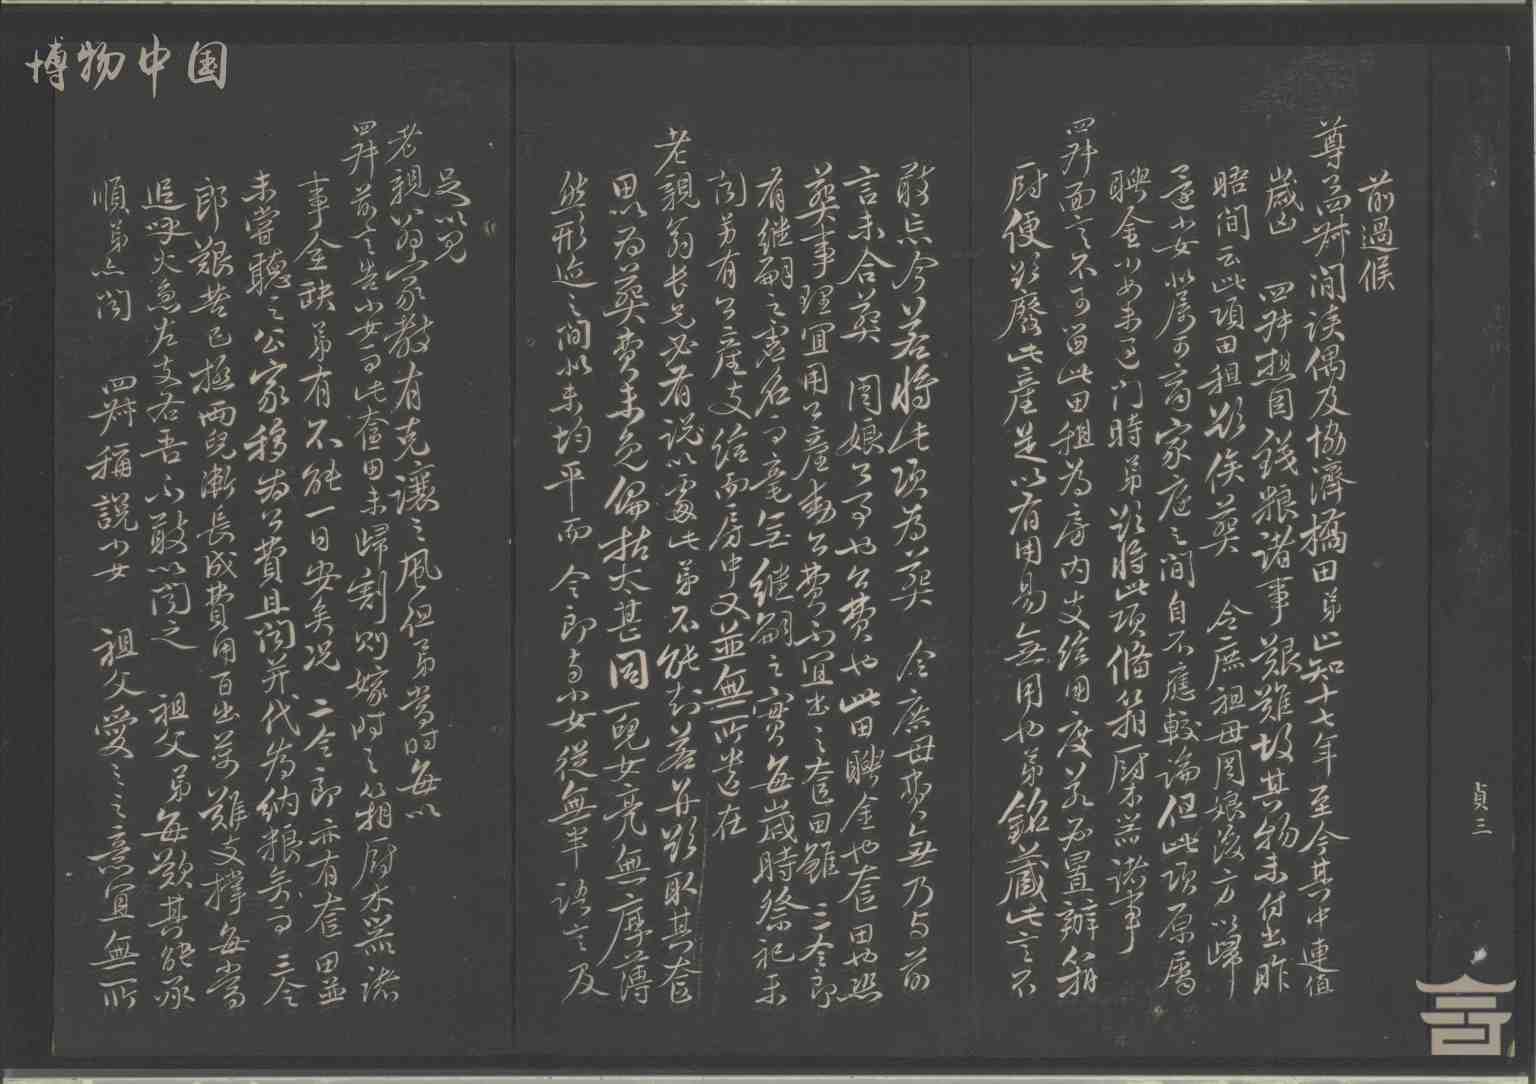 博物中国
貞三
前過候
尊齋舜間談偶及協濟橋田弟止知十七年至今其中連值
歲凶 四舜担目錢粮諸事艱難故其物未付出昨
晤間云此項田租欲俟葬 令庶祖母周娘後方以歸
小女此属可商家庭之間自不應較論但此項原属
聘金小女未過門時弟欲將此項備箱厨木器諸事
四舜面言不可留此田租為房内支給用度若必置辦箱
厨便欲廢此產是以有用易無用也弟銘藏此言不
敢忘今若將此項為葬 令庶母費無乃与前
言未合葬 周娘公事也公費也此田聘金也奩田也然
葬事理宜用公產動公費不宜出之奩田雖 三令郎
有继嗣之虚名而毫無继嗣之實每歲時祭祀未
聞另有公產支给而房中又並無所遺在
老親翁長兄必有說以處此弟不能知若并欲取其奩
田以為葬費未免偏枯太甚同一兒女亮無厚薄
然形迹之間似未均平而 令郎与小女從無半語言及
足以見
老親翁家教有克讓之風但弟當時每以
四舜前言告小女而此奩田未歸割則嫁時之箱厨木器諸
事全缺弟有不能一日安矣况 二令郎亦有奩田並
未嘗聽之公家移為公費且聞并代為納粮矣而 三令
郎艱苦已極兩兒漸長成費用百出万難支撐每當
追呼火急左支右吾不敢以聞之 祖父 弟每歎其能承
順弟亦聞 四舜稱說小女 祖父愛之之意宜無所